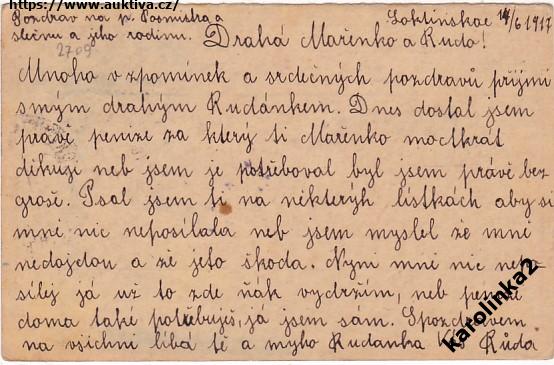 https://www.auktiva.cz/
Pozdrav na p. Posmitra a
slečnu a jeho rodinu.
2709
Loktinskoe 14/6 1917
Drahá Mařenko a Rudo!
Mnoho vzpomínek a srdečných pozdravů přijmi
s mým drahým Rudánkem. Dnes dostal jsem
právě penize za ktery ti Mařenko moctkrát
děkuji neb jsem je potřeboval byl jsem právě bez
groše. Psal jsem ti na některyh lístkách aby si
mně nic neposílala neb jsem myslel že mně
nedojdou a že jeto škoda. Nyni mně nic nepo
silej já už to zde ňák vydržím, neb penize
doma také potřebuješ, já jsem sám. S pozdravem
na všichni líbá tě a myho Rudanka Růda
karolinka2